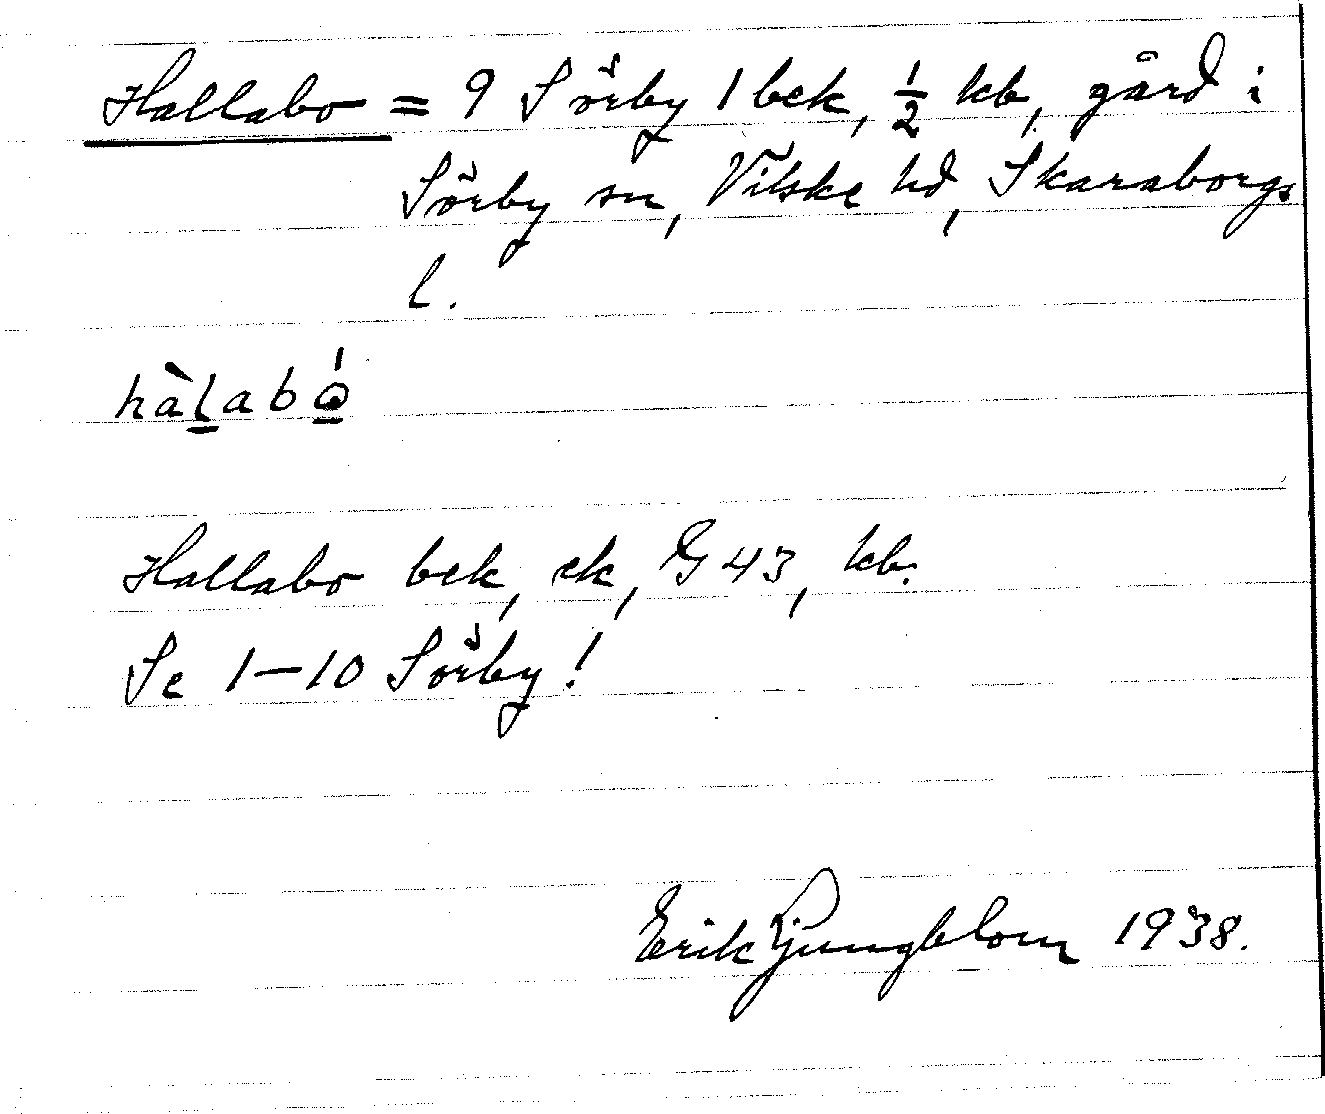 Hallabo = 9 Sörby 1 bek, ½ kb, gård i
Sörby sn, Vilske hd, Skaraborgs
l.
hàlabó
Hallabo bek, ek, G 43, kb.
Se 1-10 Sörby!
Erik Ljungblom 1938.